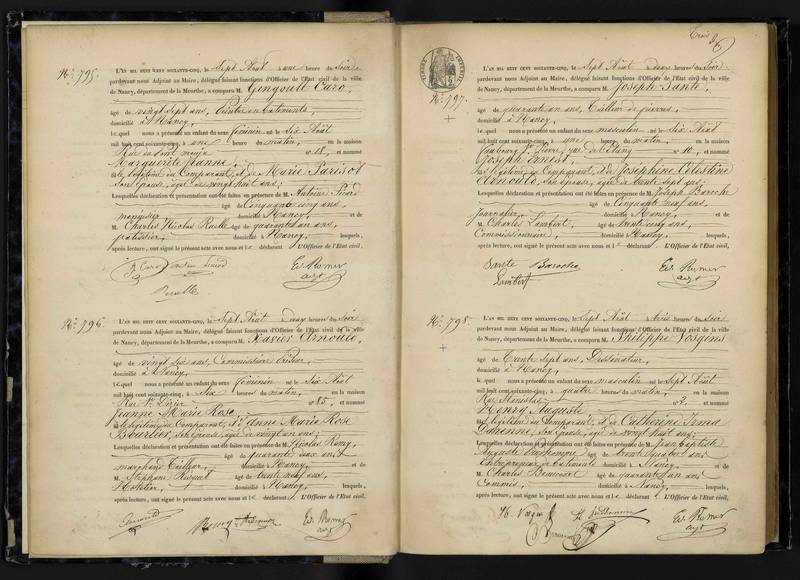 No. 795.
L'AN MIL HUIT CENT SOIXANTE-CINQ, le Sept Août une heure du Soir
pardevant nous Adjoint au Maire, délégué faisant fonctions d'Officier de l'Etat civil de la ville
de Nancy, département de la Meurthe, a comparu M. Gengoult Caro,
âgé de vingt sept ans, Peintre en batiments,
domicilié à Nancy,
lequel nous a présenté un enfant du sexe féminin né le Six Août
mil huit cent soixante-cinq, à une heure du matin, en la maison
Rue no 18, et nommé
Marguerite Jeanne,
fille légitime du Comparant, et de Marie Parisot
Son épouse, âgée de vingt huit ans;
Lesquelles déclaration et présentation ont été faites en présence de M. Antoine Picard
âgé de Cinquante cinq ans,
menuisier, domicilié à Nancy, et de
M. Charles Nicolas Ruelle âgé de quarante un ans,
domicilié à Nancy, lesquels,
après lecture, ont signé le présent acte avec nous et le déclarant L'Officier de l'Etat civil,
No. 796.
L'AN MIL HUIT CENT SOIXANTE-CINQ, le Sept Août Deux heures du Soir
pardevant nous Adjoint au Maire, délégué faisant fonctions d'Officier de l'Etat civil de la ville
de Nancy, département de la Meurthe, a comparu M. Xavier Arnould,
âgé de vingt six ans, Commissaire Priseur,
domicilié à Nancy,
lequel nous a présenté un enfant du sexe féminin né le Six Août
mil huit cent soixante-cinq, à Six heures du matin, en la maison
Rue St. Dizier no 85, et nommé
Jeanne Marie Rose
fille légitime du Comparant, et d'Anne Marie Rose
Bourlier, son épouse, âgée de vingt un ans;
Lesquelles déclaration et présentation ont été faites en présence de M. Nicolas Remy,
âgé de quarante deux ans,
marchand Tailleur, domicilié à Nancy, et de
M. Stéphane âgé de trente neuf ans,
Hôtelier, domicilié à Nancy, lesquels,
après lecture, ont signé le présent acte avec nous et le déclarant L'Officier de l'Etat civil,
No. 797.
L'AN MIL HUIT CENT SOIXANTE-CINQ, le Sept Août Deux heures du Soir
pardevant nous Adjoint au Maire, délégué faisant fonctions d'Officier de l'Etat civil de la ville
de Nancy, département de la Meurthe, a comparu M. Joseph Sante,
âgé de quarante un ans, Tailleur de pierres,
domicilié à Nancy,
lequel nous a présenté un enfant du sexe masculin né le Six Août
mil huit cent soixante-cinq, à une heure du matin, en la maison
faubourg St. Pierre, rue de l'Etang no 10, et nommé
Joseph Ernest,
fils légitime du Comparant, et de Joséphine Célestine
Arnould, Son épouse, âgée de trente sept ans;
Lesquelles déclaration et présentation ont été faites en présence de M. Joseph Baroche
âgé de Cinquante neuf ans,
Journalier, domicilié à Nancy, et de
M. Charles Lambert, âgé de trente cinq ans,
Commissionnaire, domicilié à Nancy, lesquels,
après lecture, ont signé le présent acte avec nous et le déclarant L'Officier de l'Etat civil,
Sante Baroche
Lambert
No. 798.
L'AN MIL HUIT CENT SOIXANTE-CINQ, le Sept Août trois heures du Soir
pardevant nous Adjoint au Maire, délégué faisant fonctions d'Officier de l'Etat civil de la ville
de Nancy, département de la Meurthe, a comparu M. Philippe Vosgien,
âgé de trente sept ans, Dessinateur,
domicilié à Nancy,
lequel nous a présenté un enfant du sexe masculin né le Sept Août
mil huit cent soixante-cinq, à quatre heures du matin, en la maison
Rue Stanislas no 2, et nommé
Henry Auguste
fils légitime du Comparant, et de Catherine Irma
son épouse, âgée de vingt huit ans;
Lesquelles déclaration et présentation ont été faites en présence de M. Jean Baptiste
Auguste âgé de trente quatre ans
Entrepreneur de batiments domicilié à Nancy, et de
M. Charles âgé de quarante un ans
Commis, domicilié à Nancy, lesquels,
après lecture, ont signé le présent acte avec nous et le déclarant L'Officier de l'Etat civil,